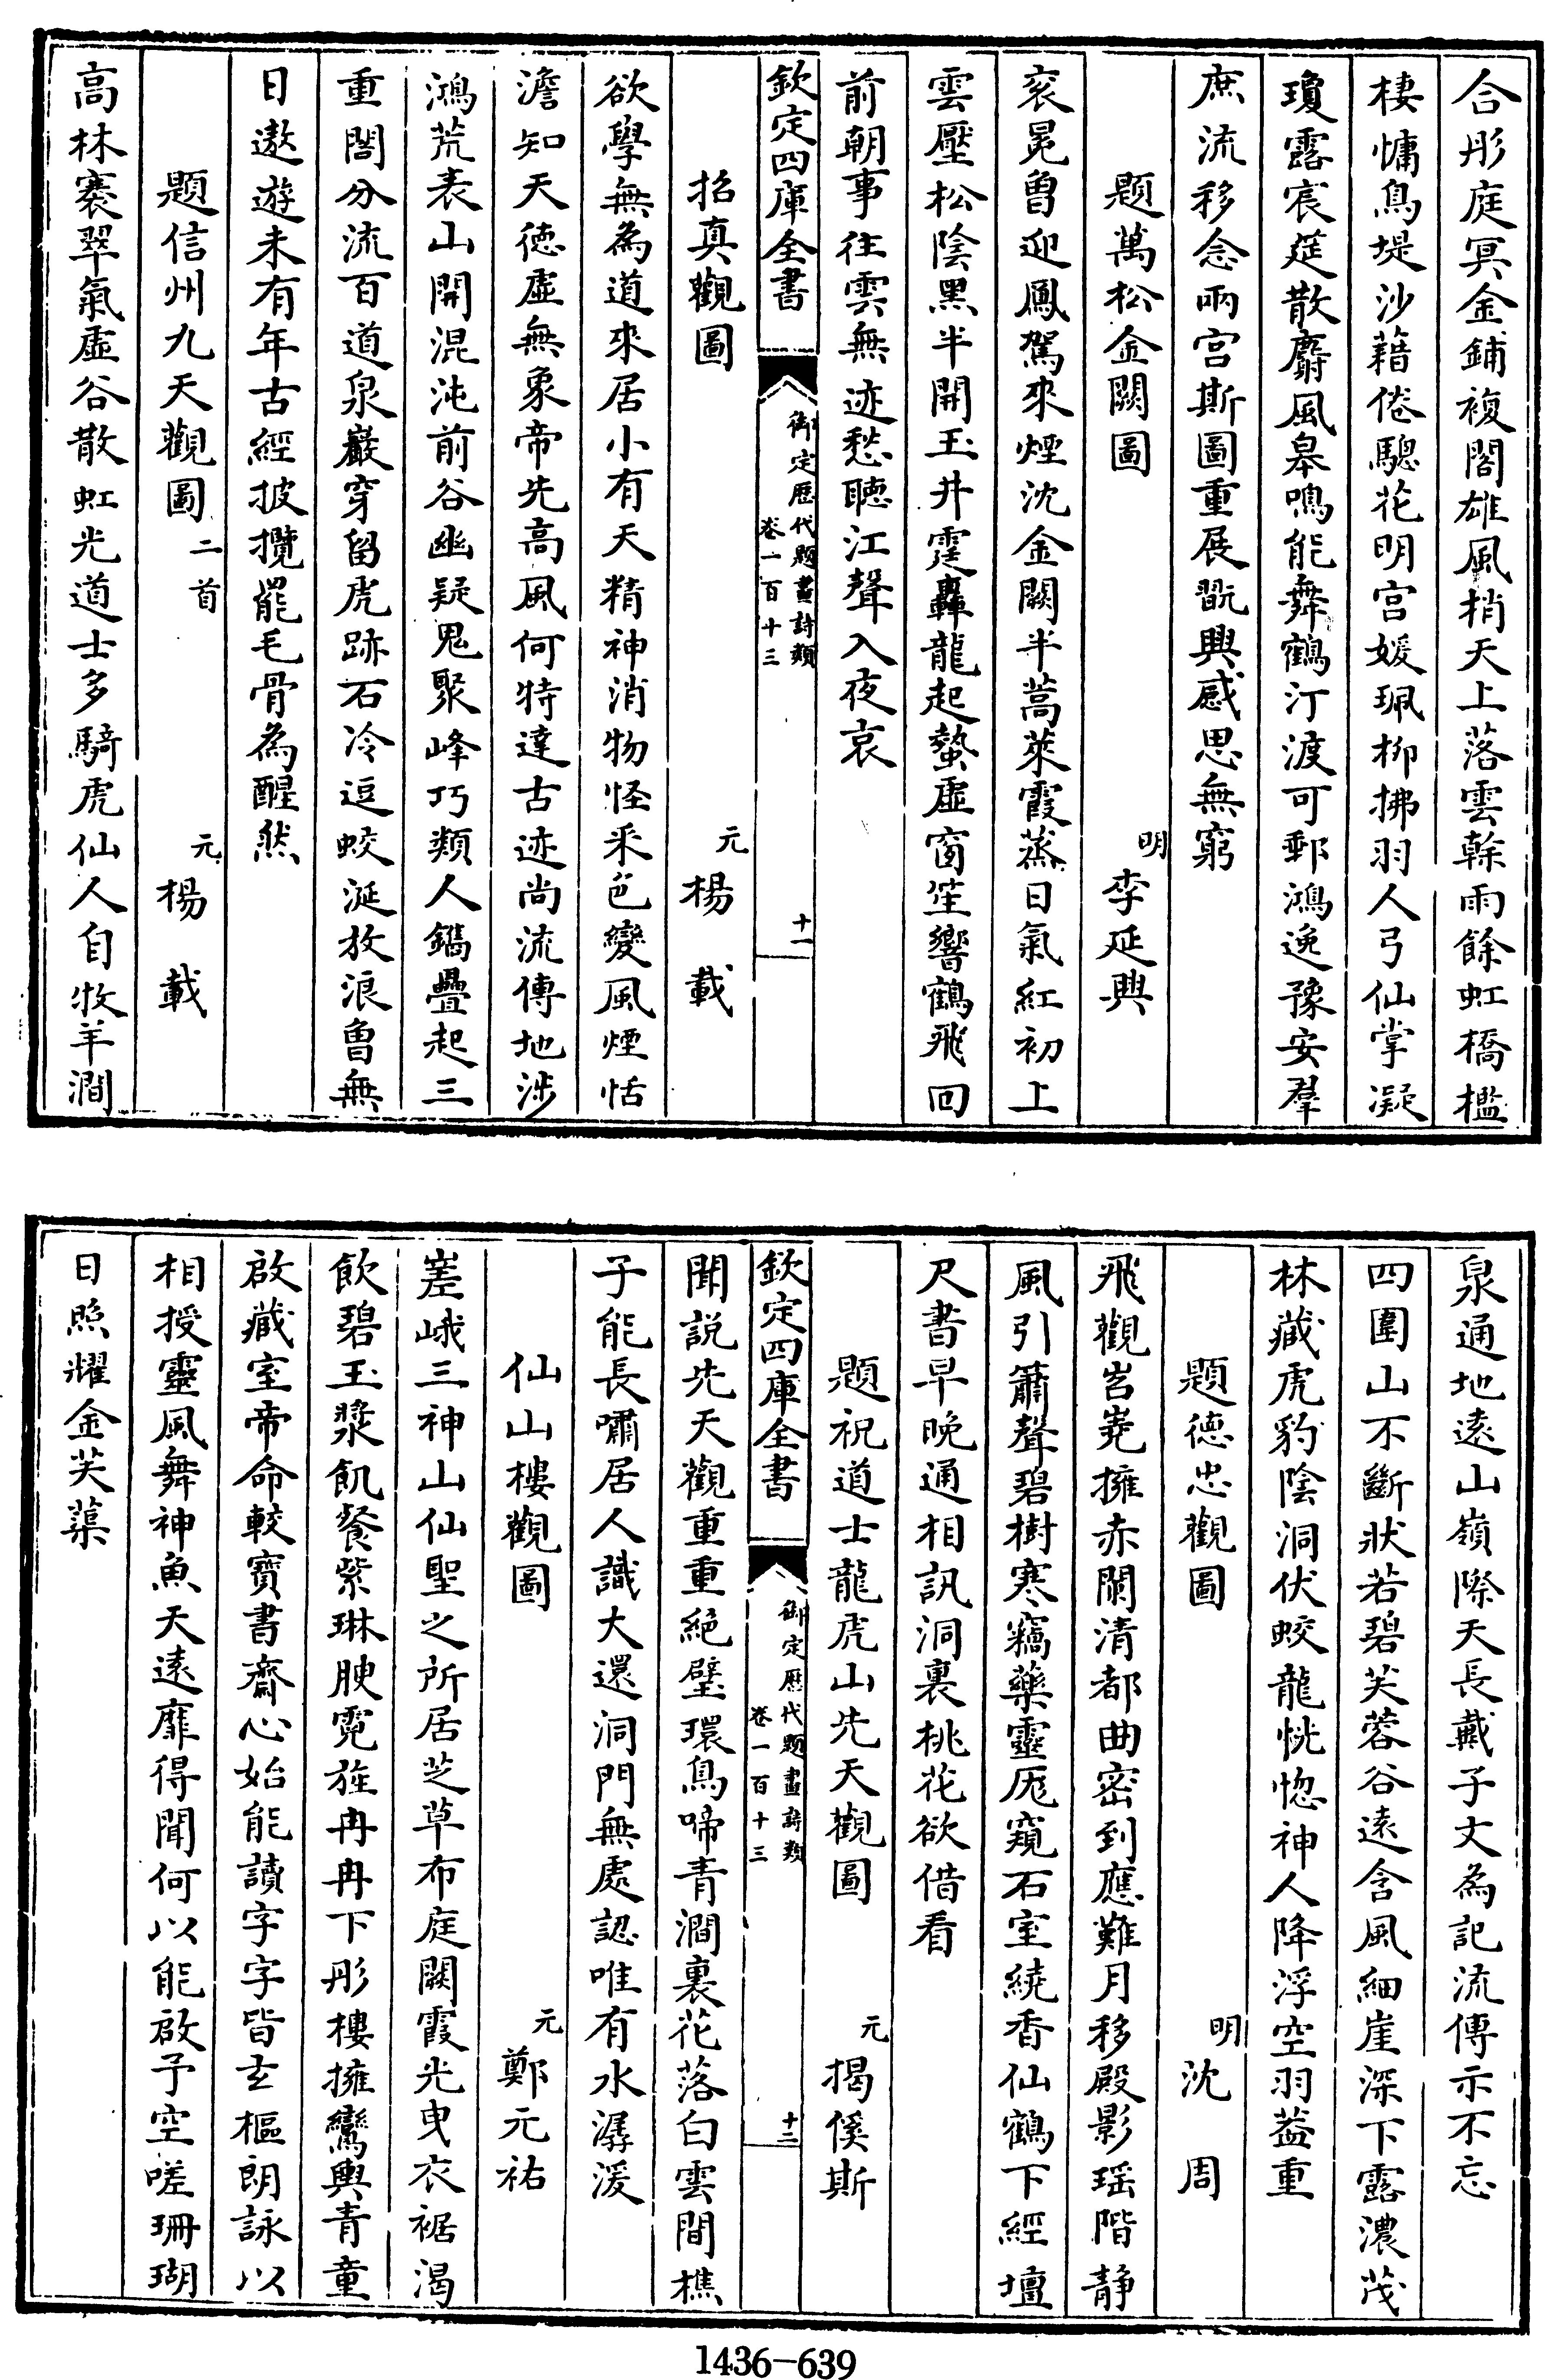 合彤庭冥金鋪複閣雄風梢天上落雲榦雨餘虹橋檻
棲慵鳥堤沙藉倦驄花明宮媛珮柳拂羽人弓仙掌凝
瓊露宸筵散麝風皋鳴能舞鶴汀渡可郵鴻逸豫安羣
庶流移念兩宫斯圖重展翫興感思無窮
題萬松金闕圖 明李延興
衮冕曽迎鳳駕來煙沈金闕半蒿萊霞蒸日氣紅初上
雲壓松陰黑半開玉井霆轟龍起蟄虛窗笙響鶴飛回
前朝事往雲無迹愁聽江聲入夜哀
欽定四庫全書 御定歷代題畫詩類 卷一百十三 十一
招真觀圖 元楊載
欲學無為道來居小有天精神消物怪采色變風煙恬
澹知天徳虛無象帝先高風何特達古迹尚流傳地涉
鴻荒表山開混沌前谷幽疑鬼聚峰巧類人鐫疊起三
重閣分流百道泉巖穿留虎跡石冷逗蛟涎放浪曽無
日遨遊未有年古經披攬罷毛骨為醒然
題信州九天觀圖二首 元楊載
高林褰翠氣虛谷散虹光道士多騎虎仙人自牧羊澗
泉通地遠山嶺際天長戴子文為記流傳示不忘
四圍山不斷狀若碧芙蓉谷遠含風細崖深下露濃茂
林藏虎豹陰洞伏蛟龍恍惚神人降浮空羽葢重
題徳忠觀圖 明沈周
飛觀岧嶤擁赤闌清都曲密到應難月移殿影瑶階静
風引簫聲碧樹寒竊藥靈厖窺石室繞香仙鶴下經壇
尺書早晚通相訊洞裏桃花欲借看
題祝道士龍虎山先天觀圖 元揭傒斯
欽定四庫全書 御定歷代題畫詩類 卷一百十三 十二
聞説先天觀重重絶壁環鳥啼青澗裏花落白雲間樵
子能長嘯居人識大還洞門無處認唯有水潺湲
仙山樓觀圖 元鄭元祐
嵳峨三神山仙聖之所居芝草布庭闕霞光曳衣裾渴
飲碧玉漿飢餐紫琳腴霓旌冉冉下彤樓擁鸞輿青童
啟藏室帝命較寳書齋心始能讀字字皆玄樞朗詠以
相授靈風舞神魚天遠靡得聞何以能啟予空嗟珊瑚
日照耀金芙蕖
1436-639